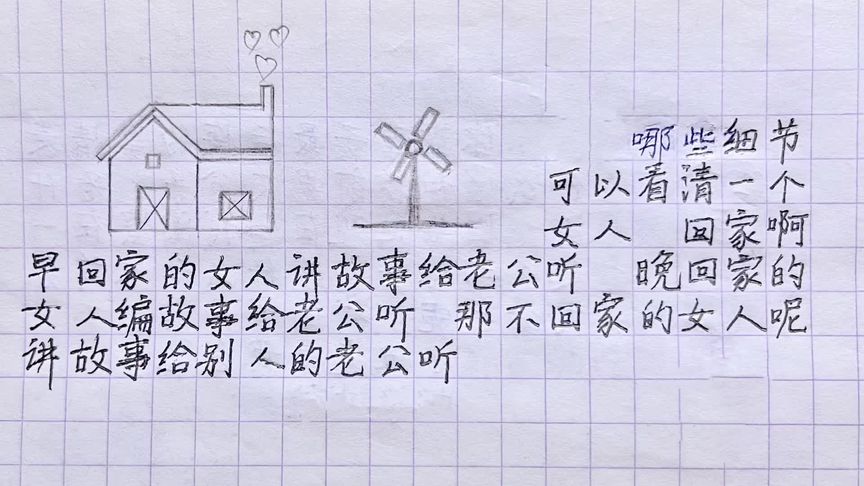 哪些细节
可以看清一个
女人 回家啊
早回家的女人讲故事给老公听 晚回家的
女人编故事给老公听 那不回家的女人呢
讲故事给别人的老公听